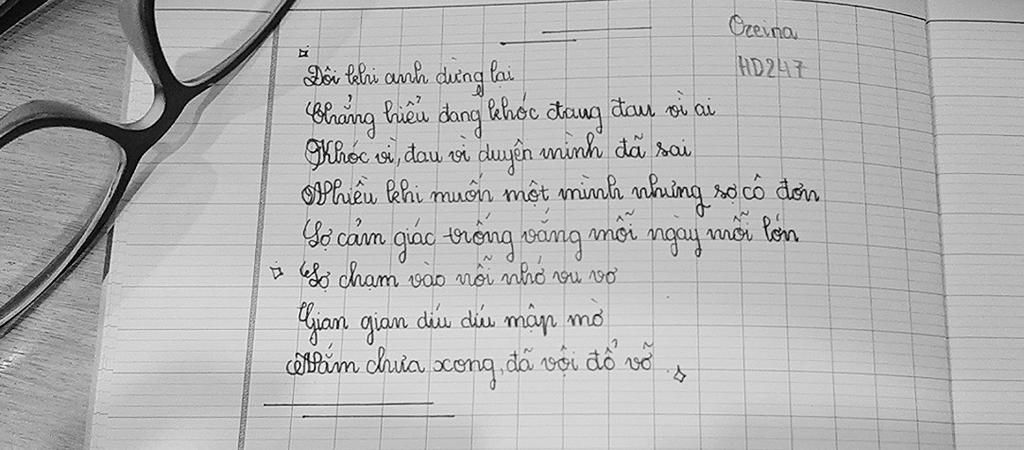 Ozeina
HD247
Đôi khi anh dừng lại
Chẳng hiểu đang khóc đang đau vì ai
Khóc vì, đau vì duyên mình đã sai
Nhiều khi muốn một mình nhưng sợ cô đơn
Sợ cảm giác trống vắng mỗi ngày mỗi lớn
Sợ chạm vào nỗi nhớ vu vơ
Gian gian díu díu mập mờ
Nắm chưa xong, đã vội đổ vỡ.